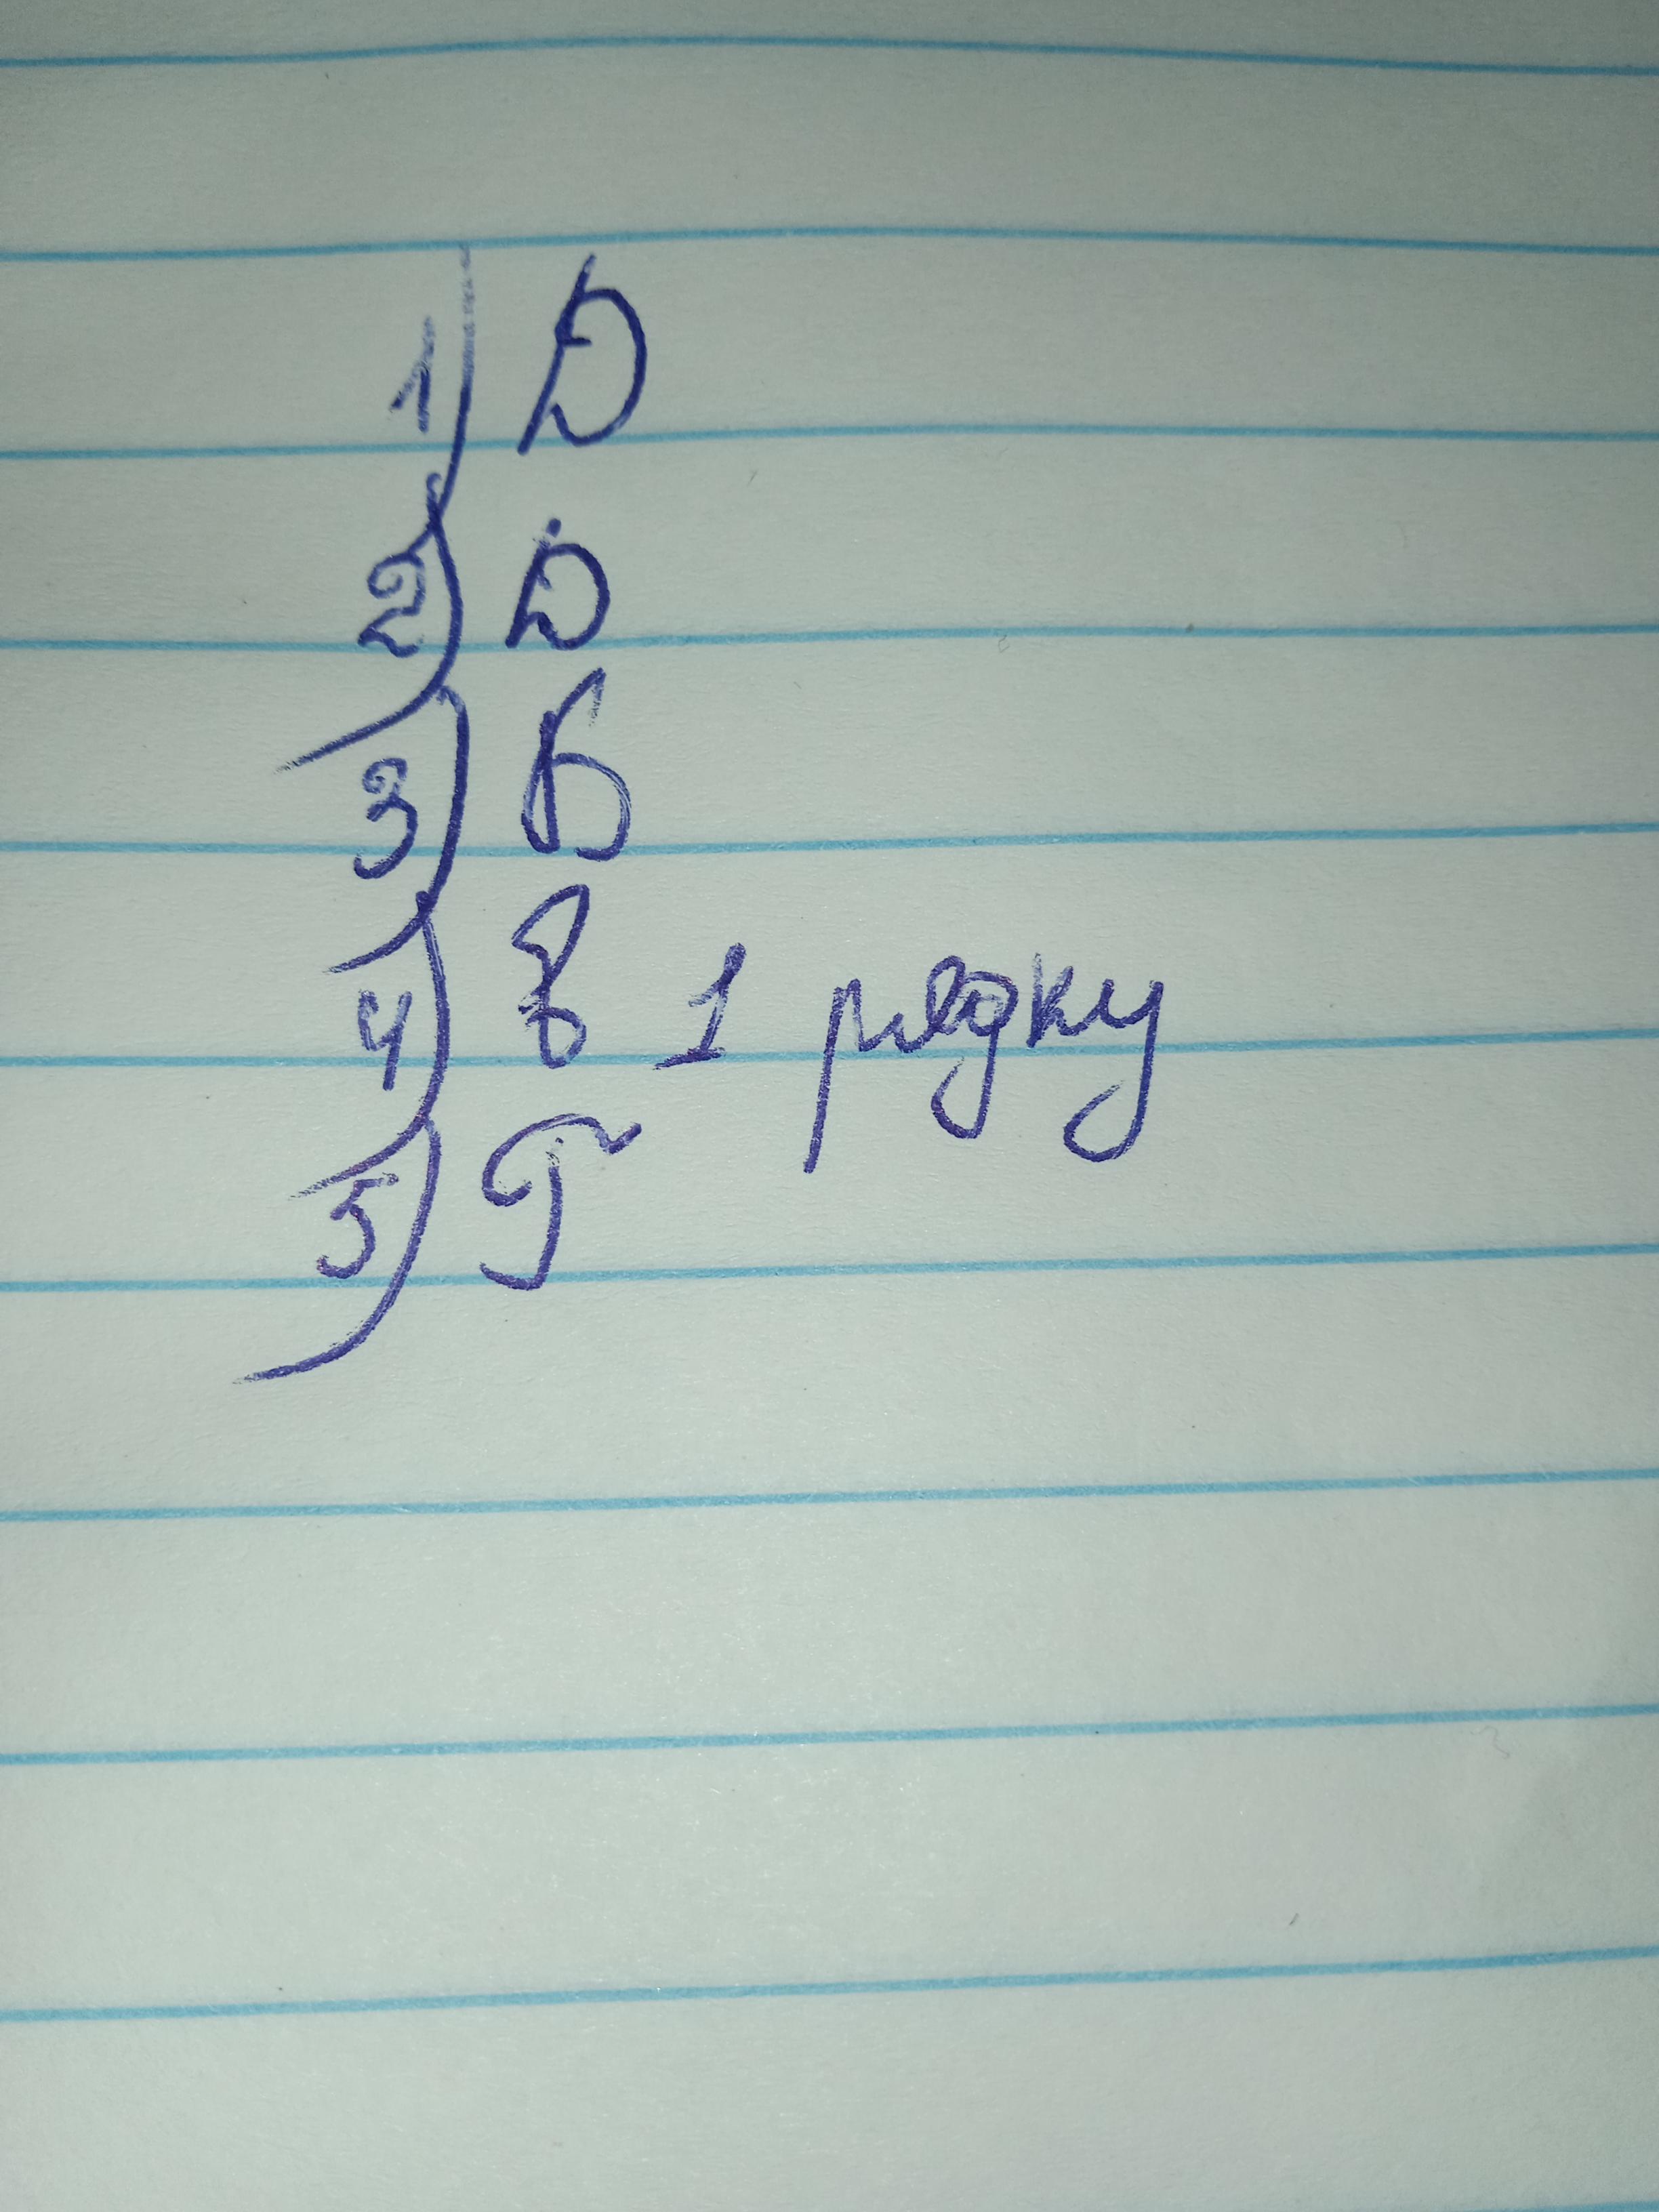 1) D
2) D
3) Б
4) в 1 рядку
5) Г